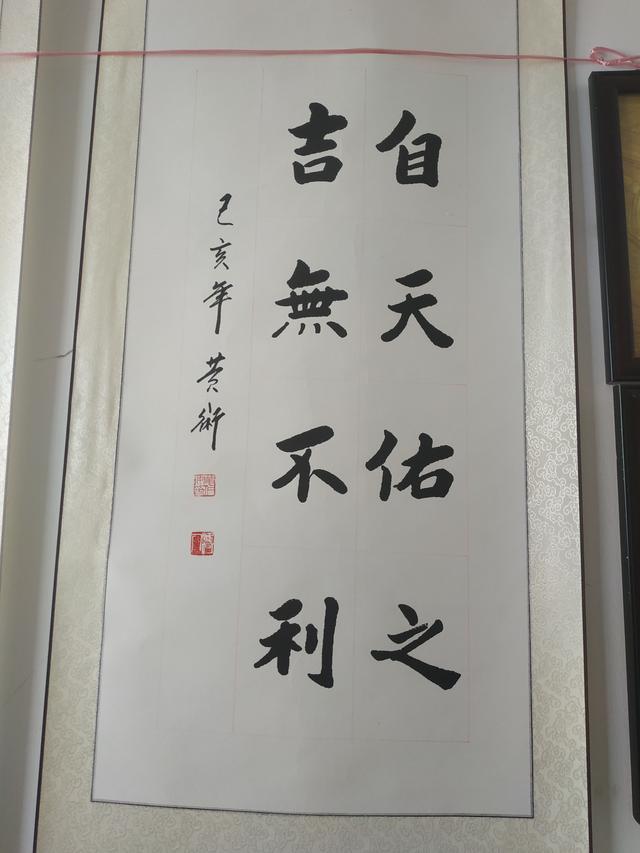 自天佑之
吉無不利
己亥年 黄術